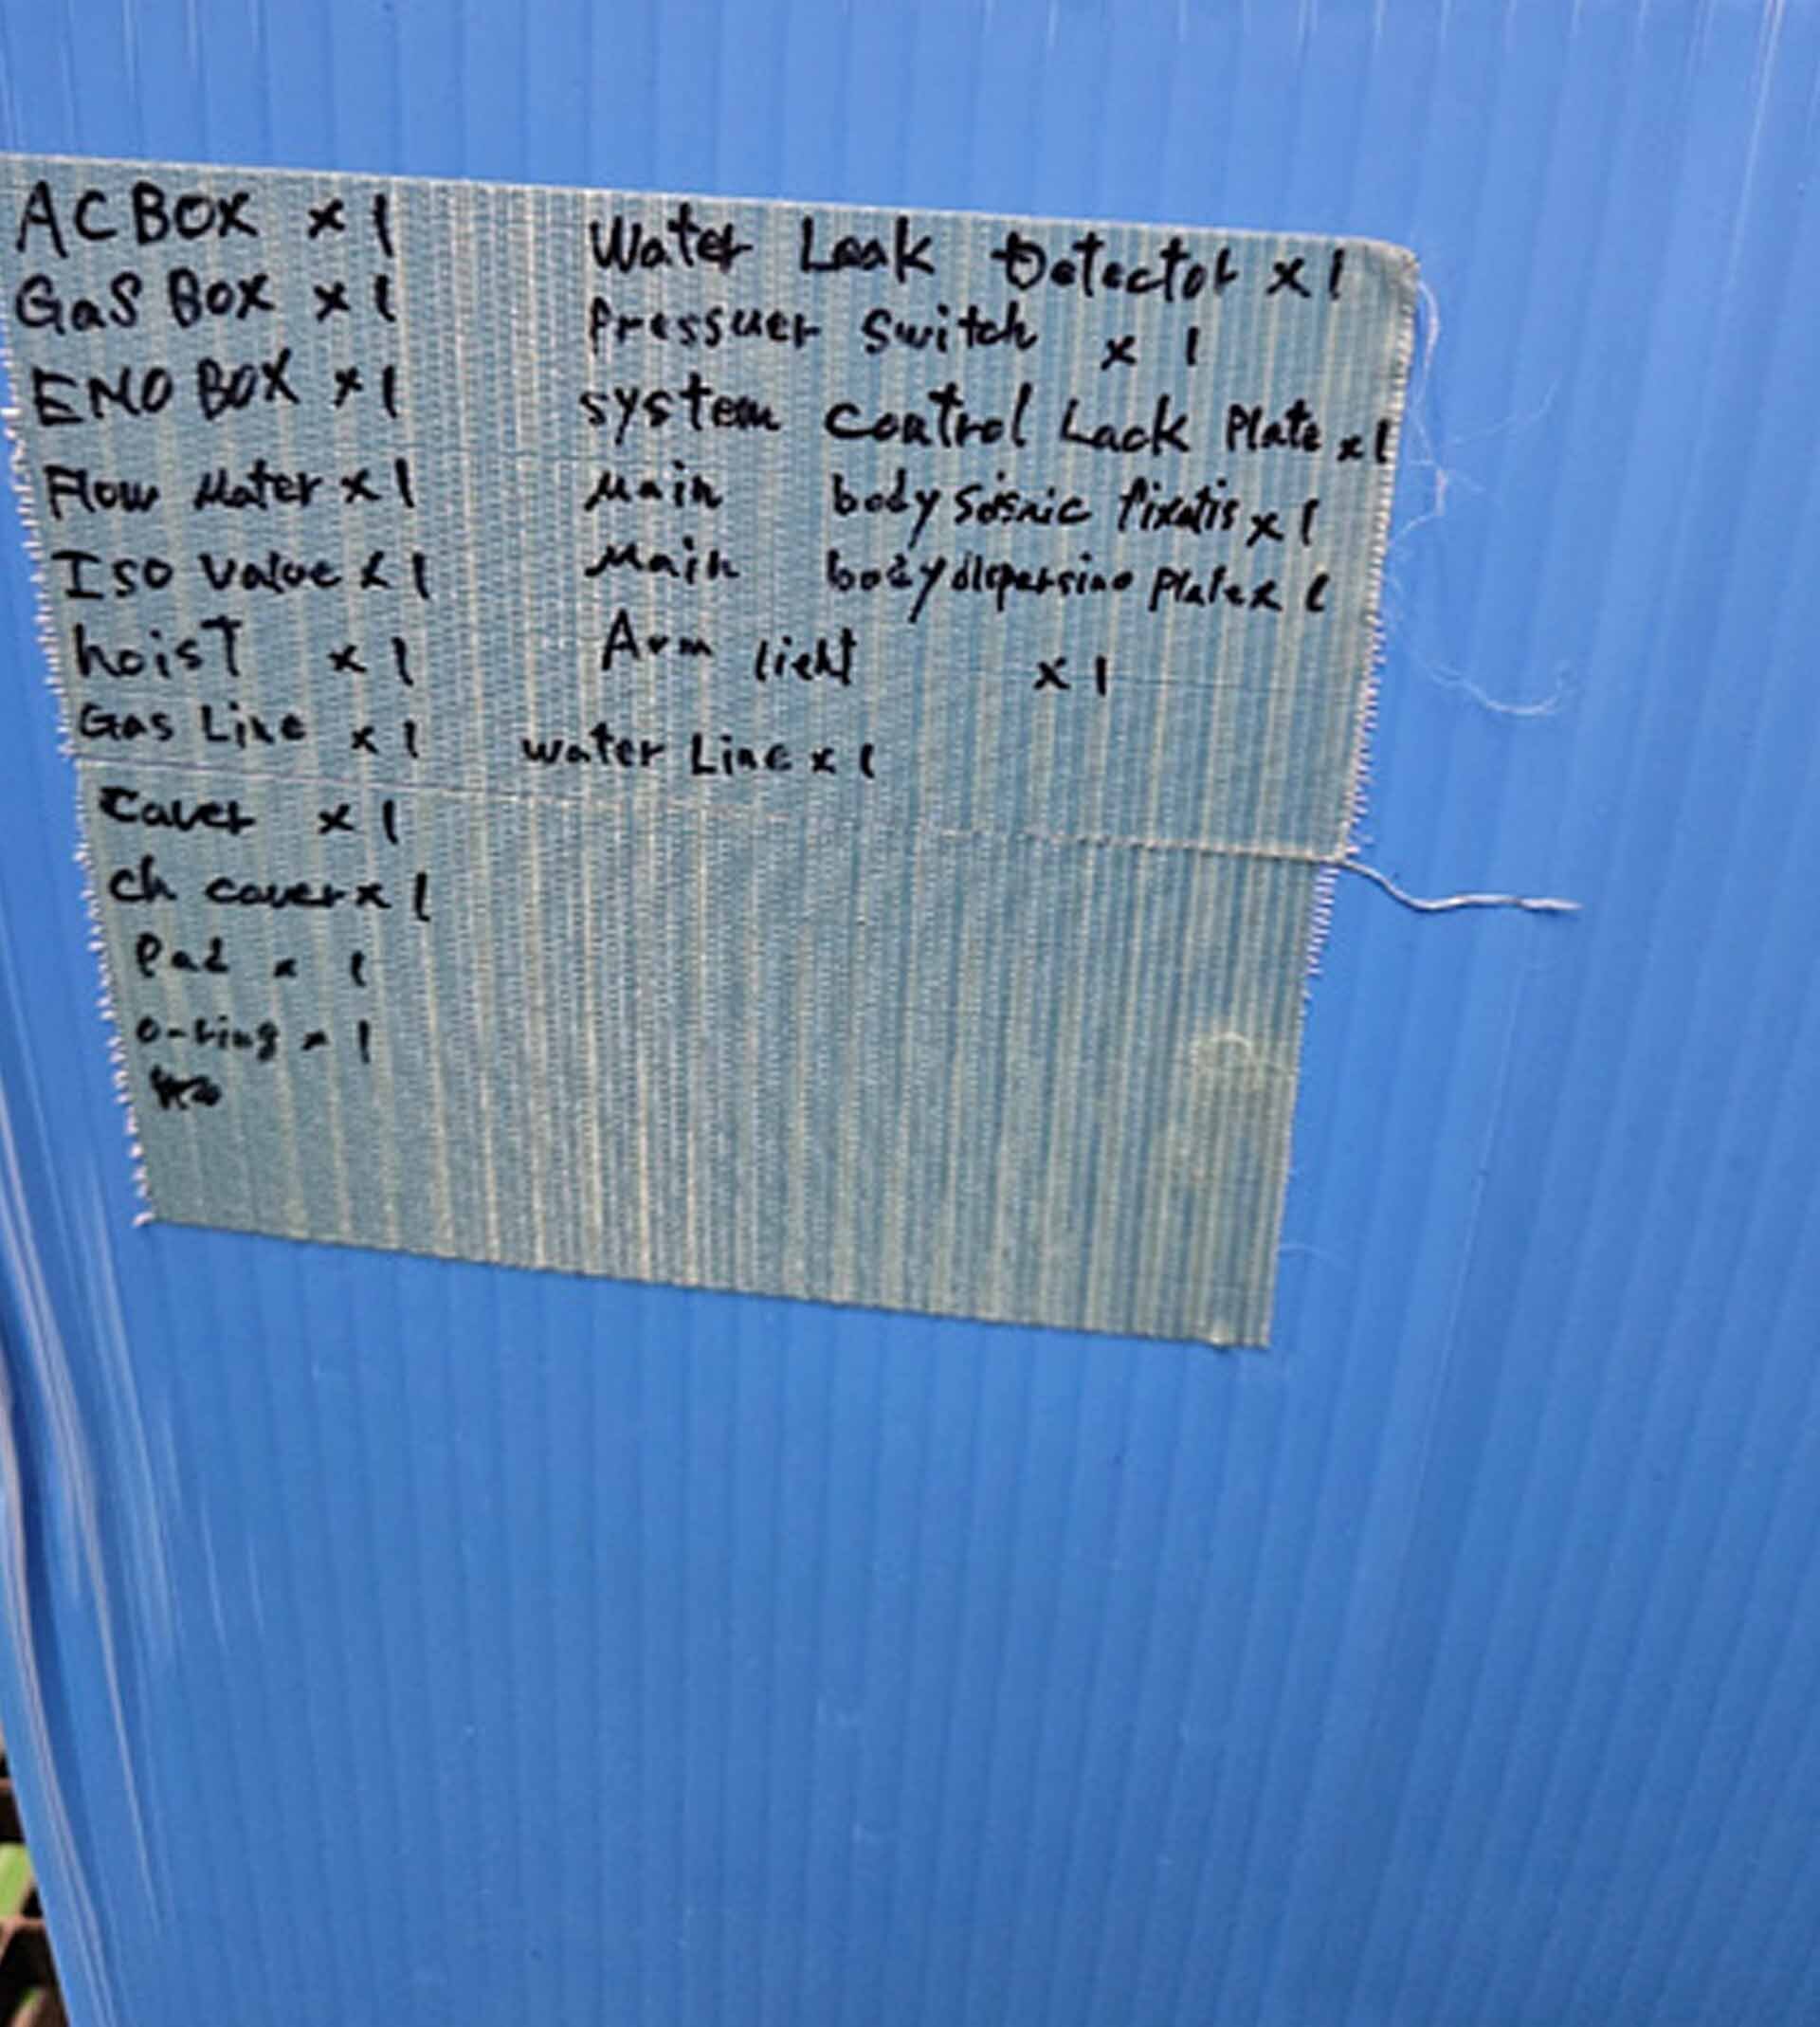 AC BOX x 1
Gas Box x 1
EMO BOX x 1
Flow Mater x 1
Iso Value x 1
hoist x 1
Gas Line x 1
Caver x 1
ch caver x 1
Pad x 1
o-ring x 1
Water Leak Detector x 1
Pressuer Switch x 1
system control Lack Plate x 1
Main body x 1
Main body dispersino plate x 1
Arm light x 1
water Line x 1